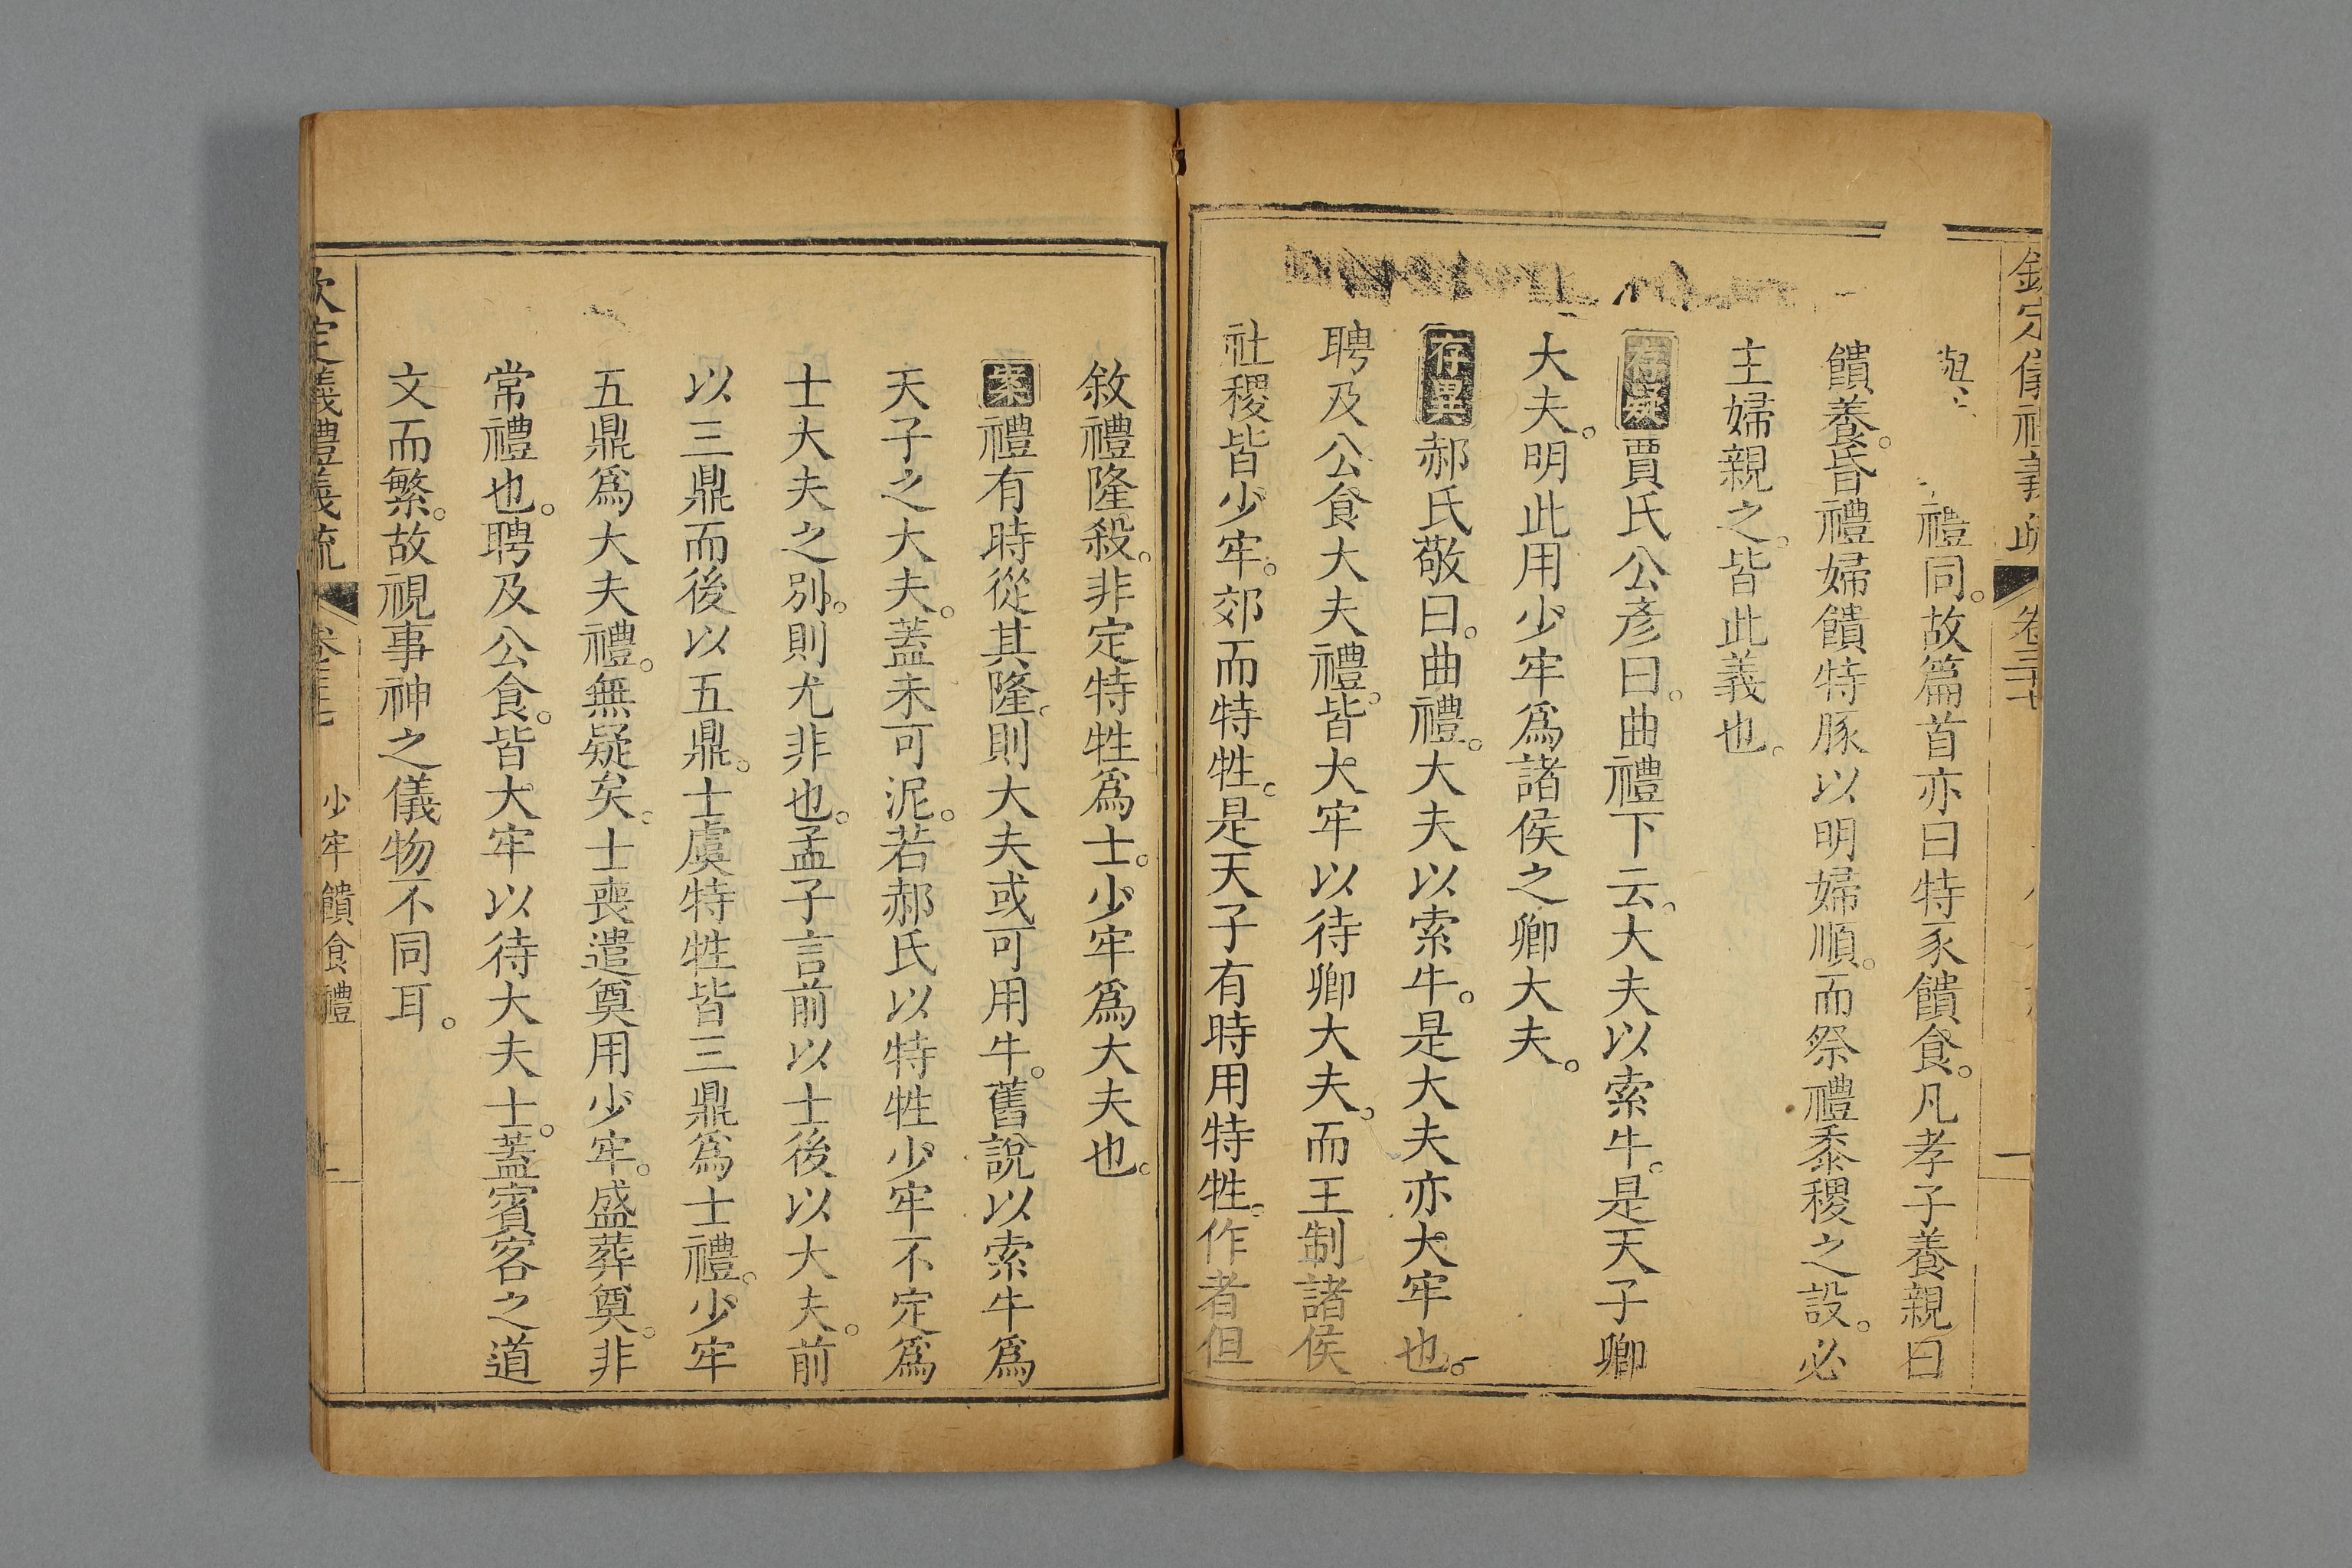 欽定儀禮義疏 卷三十七 一
與 禮同。故篇首亦曰特豕饋食。凡孝子養親曰
饋養。昏禮婦饋特豚以明婦順。而祭禮黍稷之設。必
主婦親之。皆此義也。
存疑 賈氏公彥曰。曲禮下云。大夫以索牛。是天子卿
大夫。明此用少牢爲諸侯之卿大夫。
存異 郝氏敬曰。曲禮。大夫以索牛。是大夫亦大牢也。
聘及公食大夫禮。皆大牢以待卿大夫。而王制諸侯
社稷皆少牢。郊而特牲。是天子有時用特牲。作者但
敘禮隆殺。非定特牲爲士。少牢爲大夫也。
案 禮有時從其隆。則大夫或可用牛。舊說以索牛爲
天子之大夫。蓋未可泥。若郝氏以特牲少牢不定爲
士大夫之別。則尤非也。孟子言前以士後以大夫。前
以三鼎而後以五鼎。士虞特牲皆三鼎爲士禮。少牢
五鼎爲大夫禮。無疑矣。士喪遣奠用少牢。盛葬奠。非
常禮也。聘及公食。皆大牢以待大夫士。蓋賓客之道
文而繁。故視事神之儀物不同耳。
欽定儀禮義疏 卷三十七 少牢饋食禮